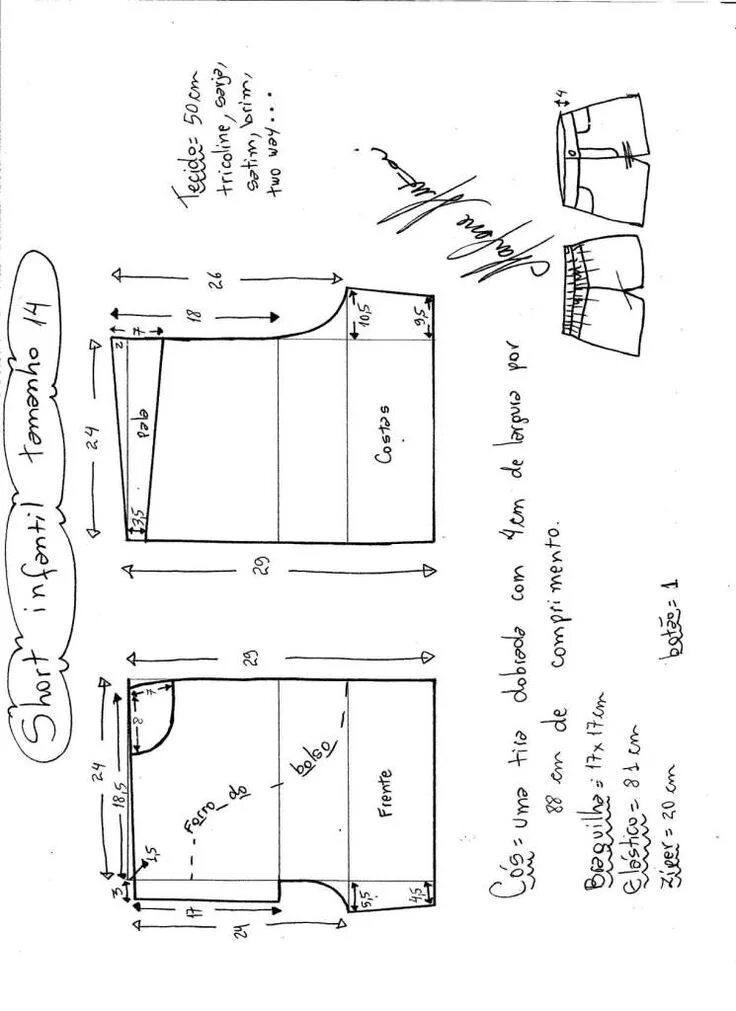 Short infantil tamanho 14
Tecido= 50cm
tricoline, sarja,
satim, brim,
two way...
Marlene Mukai
24
18,5
8
7
29
Forro do bolso
Frente
1,5
3
17
24
5,5
4,5
26
18
7
2
24
Pala
3,5
10,5
9,5
Costas
29
4
Cós= uma tira dobrada com 4cm de largura por
88 cm de comprimento.
Braguilha= 17x17cm
Elástico= 81cm
Zíper= 20cm
botão= 1